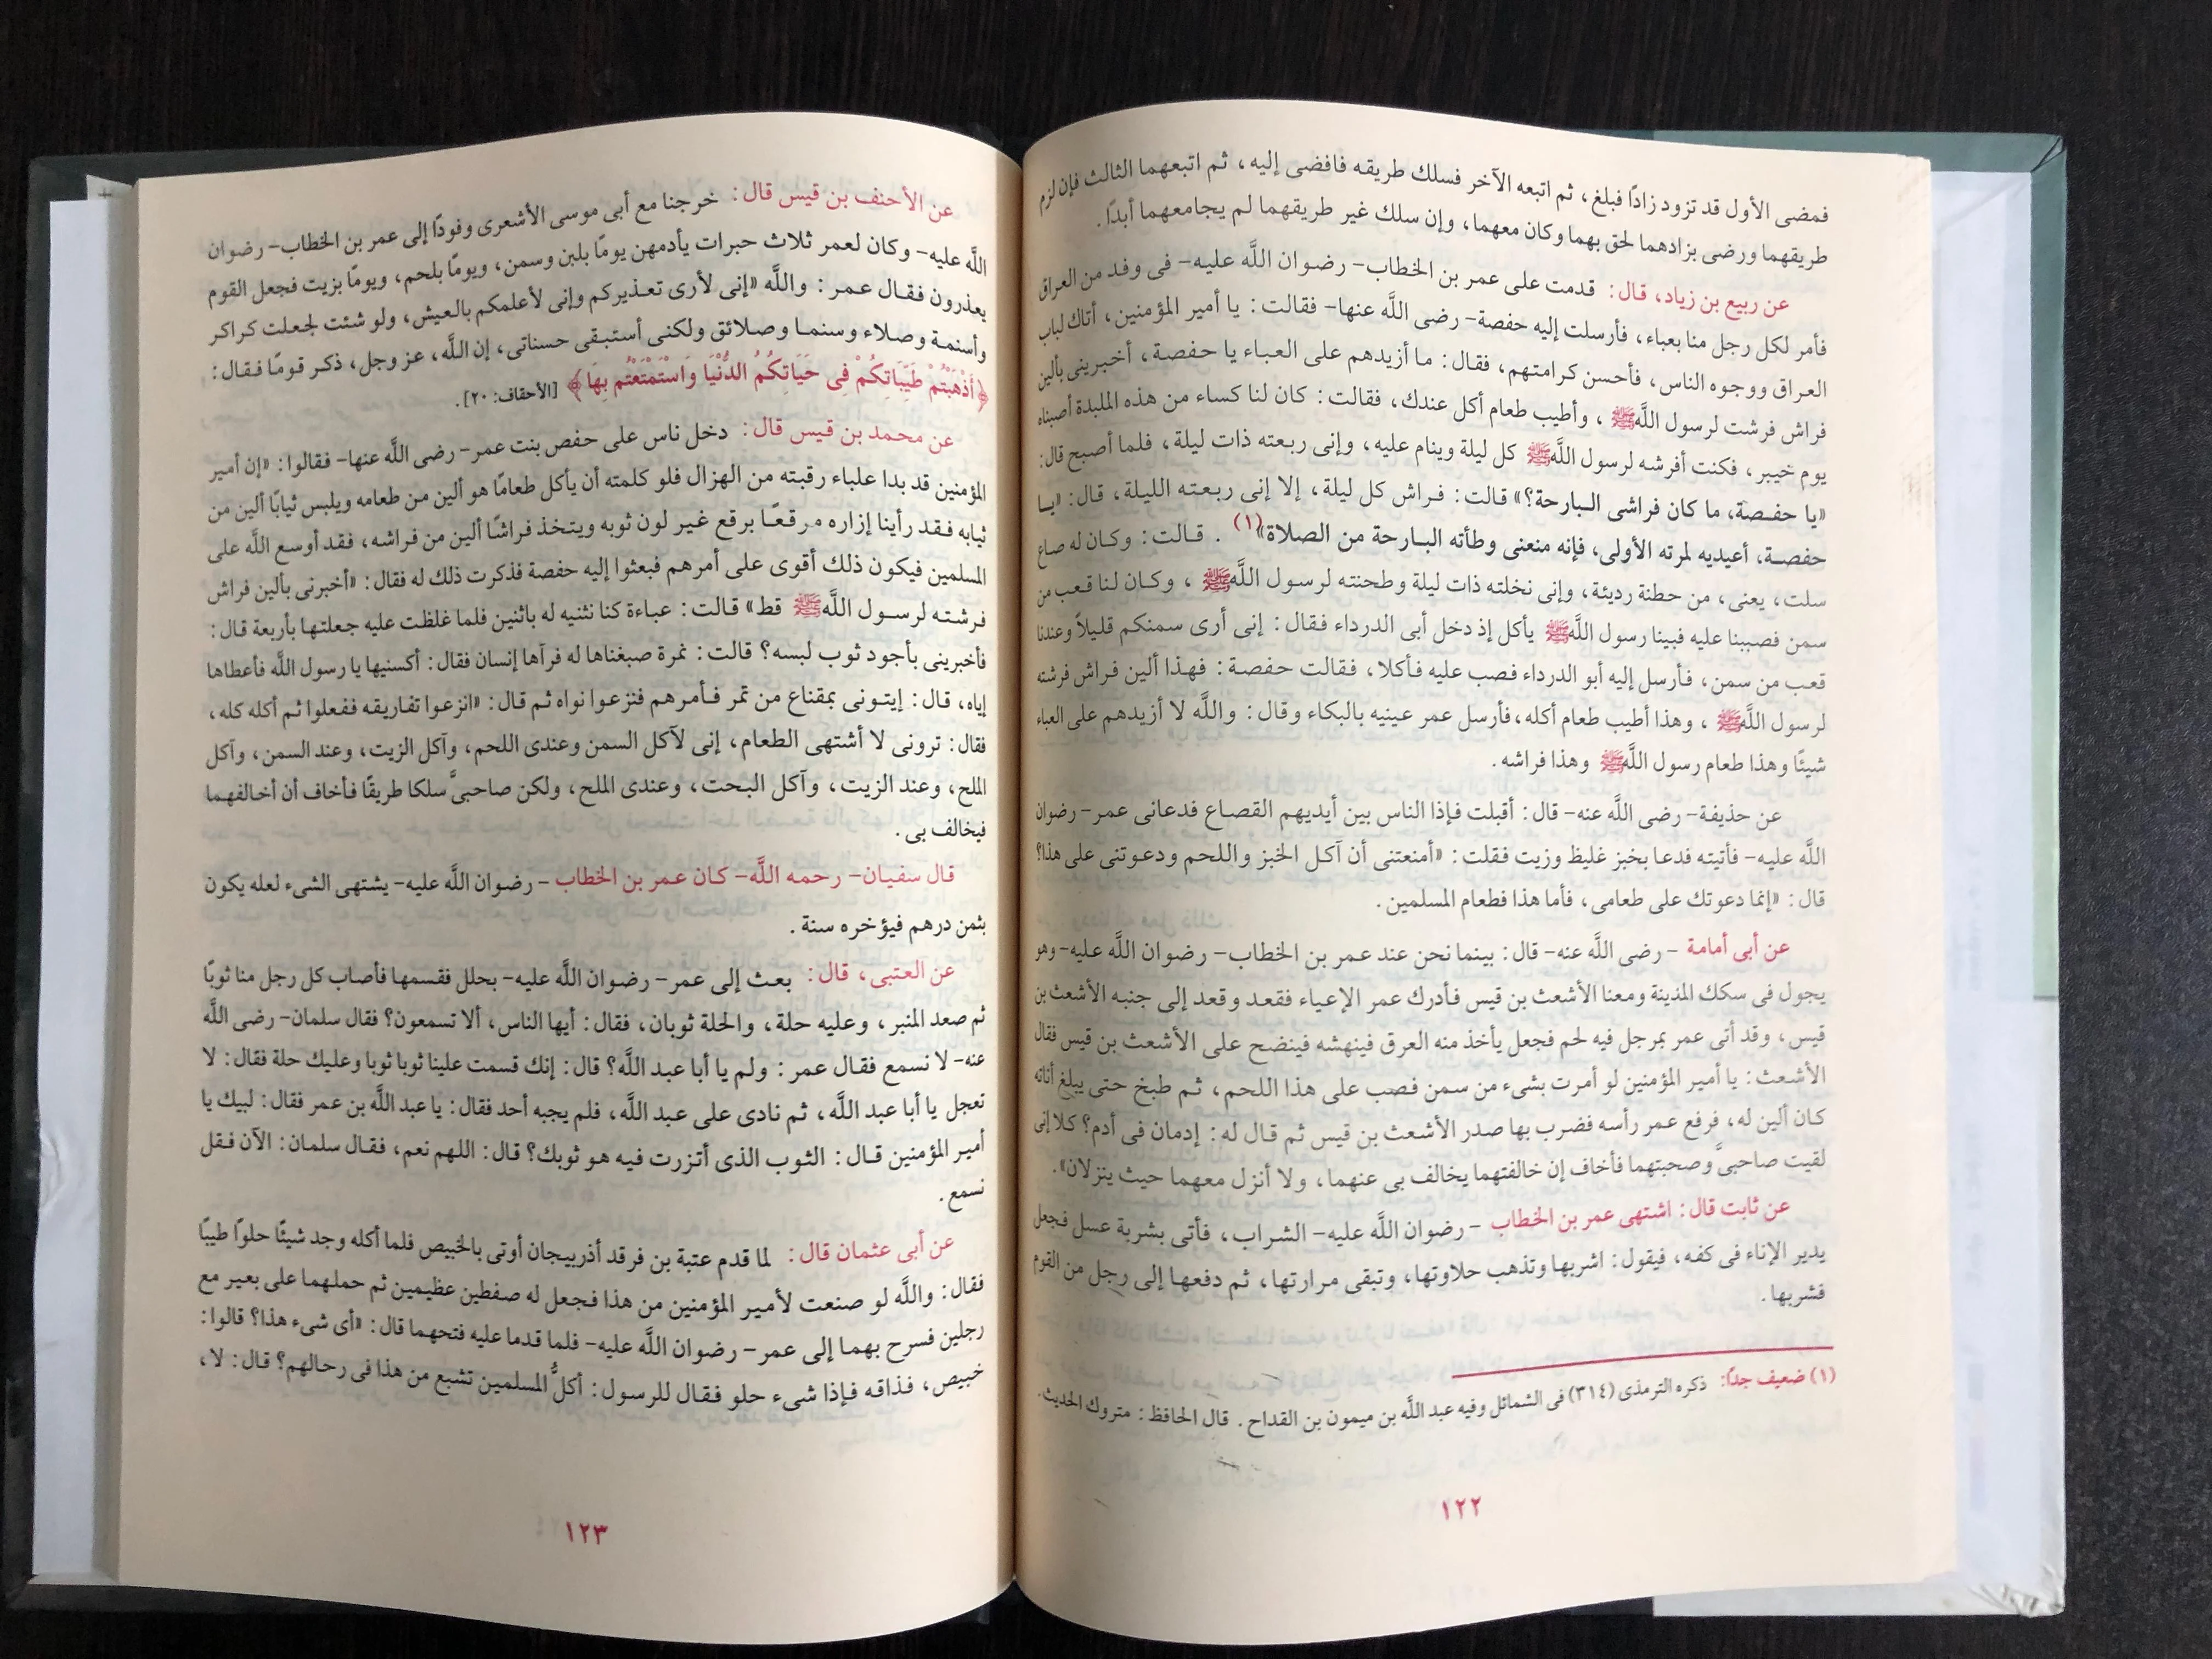 فمضى الأول قد تزود زادًا فبلغ، ثم اتبعه الآخر فسلك طريقه فافضى إليه، ثم اتبعهما الثالث فإن لزم
طريقهما ورضى بزادهما لحق بهما وكان معهما، وإن سلك غير طريقهما لم يجامعهما أبدًا.
عن ربيع بن زياد، قال: قدمت على عمر بن الخطاب- رضوان اللَّه عليه- فى وفد من العراق
فأمر لكل رجل منا بعباء، فأرسلت إليه حفصة- رضى اللَّه عنها- فقالت: يا أمير المؤمنين، أتاك لباب
العراق ووجوه الناس، فأحسن كرامتهم، فقال: ما أزيدهم على العباء يا حفصة، أخبرينى بألين
فراش فرشت لرسول اللَّه ﷺ، وأطيب طعام أكل عندك، فقالت: كان لنا كساء من هذه الملبدة أصبناه
يوم خيبر، فكنت أفرشه لرسول اللَّه ﷺ كل ليلة وينام عليه، وإنى ربعته ذات ليلة، فلما أصبح قال:
«يا حفصة، ما كان فراشى البارحة؟» قالت: فراش كل ليلة، إلا إنى ربعته الليلة، قال: «يا
حفصة، أعيديه لمرته الأولى، فإنه منعنى وطأته البارحة من الصلاة»(١). قالت: وكان له صاع
سلت، يعنى، من حطنة رديئة، وإنى نخلته ذات ليلة وطحنته لرسول اللَّه ﷺ، وكان لنا قعب من
سمن فصببنا عليه فبينا رسول اللَّه ﷺ يأكل إذ دخل أبى الدرداء فقال: إنى أرى سمنكم قليلاً وعندنا
قعب من سمن، فأرسل إليه أبو الدرداء فصب عليه فأكلا، فقالت حفصة: فهذا ألين فراش فرشته
لرسول اللَّه ﷺ، وهذا أطيب طعام أكله، فأرسل عمر عينيه بالبكاء وقال: واللَّه لا أزيدهم على العباء
شيئًا وهذا طعام رسول اللَّه ﷺ وهذا فراشه.
عن حذيفة- رضى اللَّه عنه- قال: أقبلت فإذا الناس بين أيديهم القصاع فدعانى عمر- رضوان
اللَّه عليه- فأتيته فدعا بخبز غليظ وزيت فقلت: «أمنعتنى أن آكل الخبز واللحم ودعوتنى على هذا؟
قال: «إنما دعوتك على طعامى، فأما هذا فطعام المسلمين.
عن أبى أمامة - رضى اللَّه عنه- قال: بينما نحن عند عمر بن الخطاب- رضوان اللَّه عليه- وهو
يجول فى سكك المدينة ومعنا الأشعث بن قيس فأدرك عمر الإعياء فقعد وقعد إلى جنبه الأشعث بن
قيس، وقد أتى عمر بمرجل فيه لحم فجعل يأخذ منه العرق فينهشه فينضح على الأشعث بن قيس فقال
الأشعث: يا أمير المؤمنين لو أمرت بشىء من سمن فصب على هذا اللحم، ثم طبخ حتى يبلغ أناته
كان ألين له، فرفع عمر رأسه فضرب بها صدر الأشعث بن قيس ثم قال له: إدمان فى أدم؟ كلا إنى
لقيت صاحبىَّ وصحبتهما فأخاف إن خالفتهما يخالف بى عنهما، ولا أنزل معهما حيث ينزلان».
عن ثابت قال: اشتهى عمر بن الخطاب - رضوان اللَّه عليه- الشراب، فأتى بشربة عسل فجعل
يدير الإناء فى كفه، فيقول: اشربها وتذهب حلاوتها، وتبقى مرارتها، ثم دفعها إلى رجل من القوم
فشربها.
(١) ضعيف جدًا: ذكره الترمذى (٣١٤) فى الشمائل وفيه عبد اللَّه بن ميمون بن القداح. قال الحافظ: متروك الحديث.
١٢٢
عن الأحنف بن قيس قال: خرجنا مع أبى موسى الأشعرى وفودًا إلى عمر بن الخطاب- رضوان
اللَّه عليه- وكان لعمر ثلاث حبرات يأدمهن يومًا بلبن وسمن، ويومًا بلحم، ويومًا بزيت فجعل القوم
يعذرون فقال عمر: واللَّه «إنى لأرى تعذيركم وإنى لأعلمكم بالعيش، ولو شئت لجعلت كراكر
وأسنمة وصلاء وسنما وصلائق ولكنى أستبقى حسناتى، إن اللَّه، عز وجل، ذكر قومًا فقال:
﴿أَذْهَبْتُمْ طَيِّبَاتِكُمْ فِى حَيَاتِكُمُ الدُّنْيَا وَاسْتَمْتَعْتُم بِهَا﴾ [الأحقاف: ٢٠].
عن محمد بن قيس قال: دخل ناس على حفص بنت عمر- رضى اللَّه عنها- فقالوا: «إن أمير
المؤمنين قد بدا علباء رقبته من الهزال فلو كلمته أن يأكل طعامًا هو ألين من طعامه ويلبس ثيابًا ألين من
ثيابه فقد رأينا إزاره مرقعًا برقع غير لون ثوبه ويتخذ فراشًا ألين من فراشه، فقد أوسع اللَّه على
المسلمين فيكون ذلك أقوى على أمرهم فبعثوا إليه حفصة فذكرت ذلك له فقال: «أخبرنى بألين فراش
فرشته لرسول اللَّه ﷺ قط» قالت: عباءة كنا نثنيه له باثنين فلما غلظت عليه جعلتها بأربعة قال:
فأخبرينى بأجود ثوب لبسه؟ قالت: نمرة صبغناها له فرآها إنسان فقال: أكسنيها يا رسول اللَّه فأعطاها
إياه، قال: إيتونى بمقناع من تمر فأمرهم فنزعوا نواه ثم قال: «انزعوا تفاريقه ففعلوا ثم أكله كله،
فقال: ترونى لا أشتهى الطعام، إنى لآكل السمن وعندى اللحم، وآكل الزيت، وعند السمن، وآكل
الملح، وعند الزيت، وآكل البحت، وعندى الملح، ولكن صاحبىَّ سلكا طريقًا فأخاف أن أخالفهما
فيخالف بى.
قال سفيان- رحمه اللَّه- كان عمر بن الخطاب - رضوان اللَّه عليه- يشتهى الشىء لعله يكون
بثمن درهم فيؤخره سنة.
عن العتبى، قال: بعث إلى عمر- رضوان اللَّه عليه- بحلل فقسمها فأصاب كل رجل منا ثوبًا
ثم صعد المنبر، وعليه حلة، والحلة ثوبان، فقال: أيها الناس، ألا تسمعون؟ فقال سلمان- رضى اللَّه
عنه- لا نسمع فقال عمر: ولم يا أبا عبد اللَّه؟ قال: إنك قسمت علينا ثوبا ثوبا وعليك حلة فقال: لا
تعجل يا أبا عبد اللَّه، ثم نادى على عبد اللَّه، فلم يجبه أحد فقال: يا عبد اللَّه بن عمر فقال: لبيك يا
أمير المؤمنين قال: الثوب الذى أتزرت فيه هو ثوبك؟ قال: اللهم نعم، فقال سلمان: الآن فقل
نسمع.
عن أبى عثمان قال: لما قدم عتبة بن فرقد أذربيجان أوتى بالخبيص فلما أكله وجد شيئًا حلوًا طيبًا
فقال: واللَّه لو صنعت لأمير المؤمنين من هذا فجعل له صفطين عظيمين ثم حملهما على بعير مع
رجلين فسرح بهما إلى عمر- رضوان اللَّه عليه- فلما قدما عليه فتحهما قال: «أى شىء هذا؟ قالوا:
خبيص، فذاقه فإذا شىء حلو فقال للرسول: أكلُّ المسلمين تشبع من هذا فى رحالهم؟ قال: لا،
١٢٣